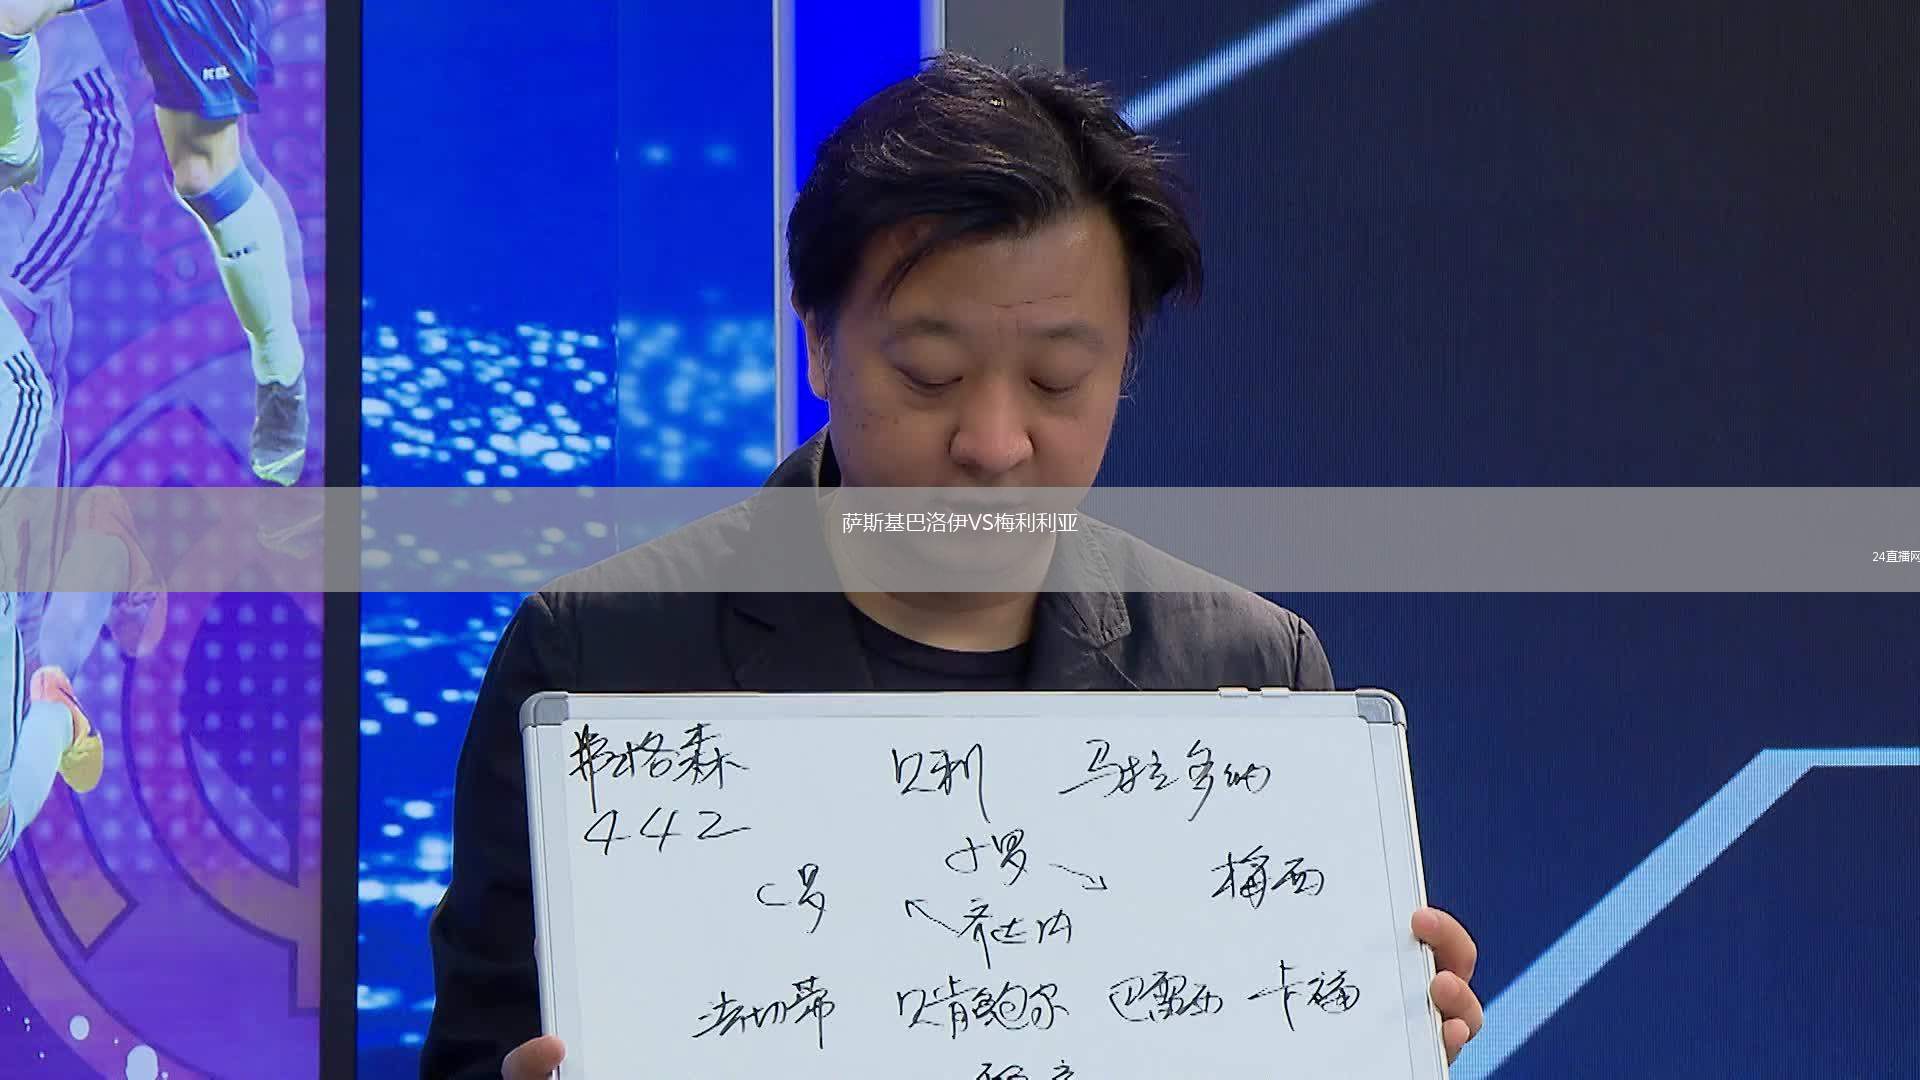 萨斯基巴洛伊VS梅利利亚
24直播网
弗格森 贝利 马拉多纳
442
小罗
C罗 梅西
齐达内
法切蒂 贝肯鲍尔 巴雷西 卡福